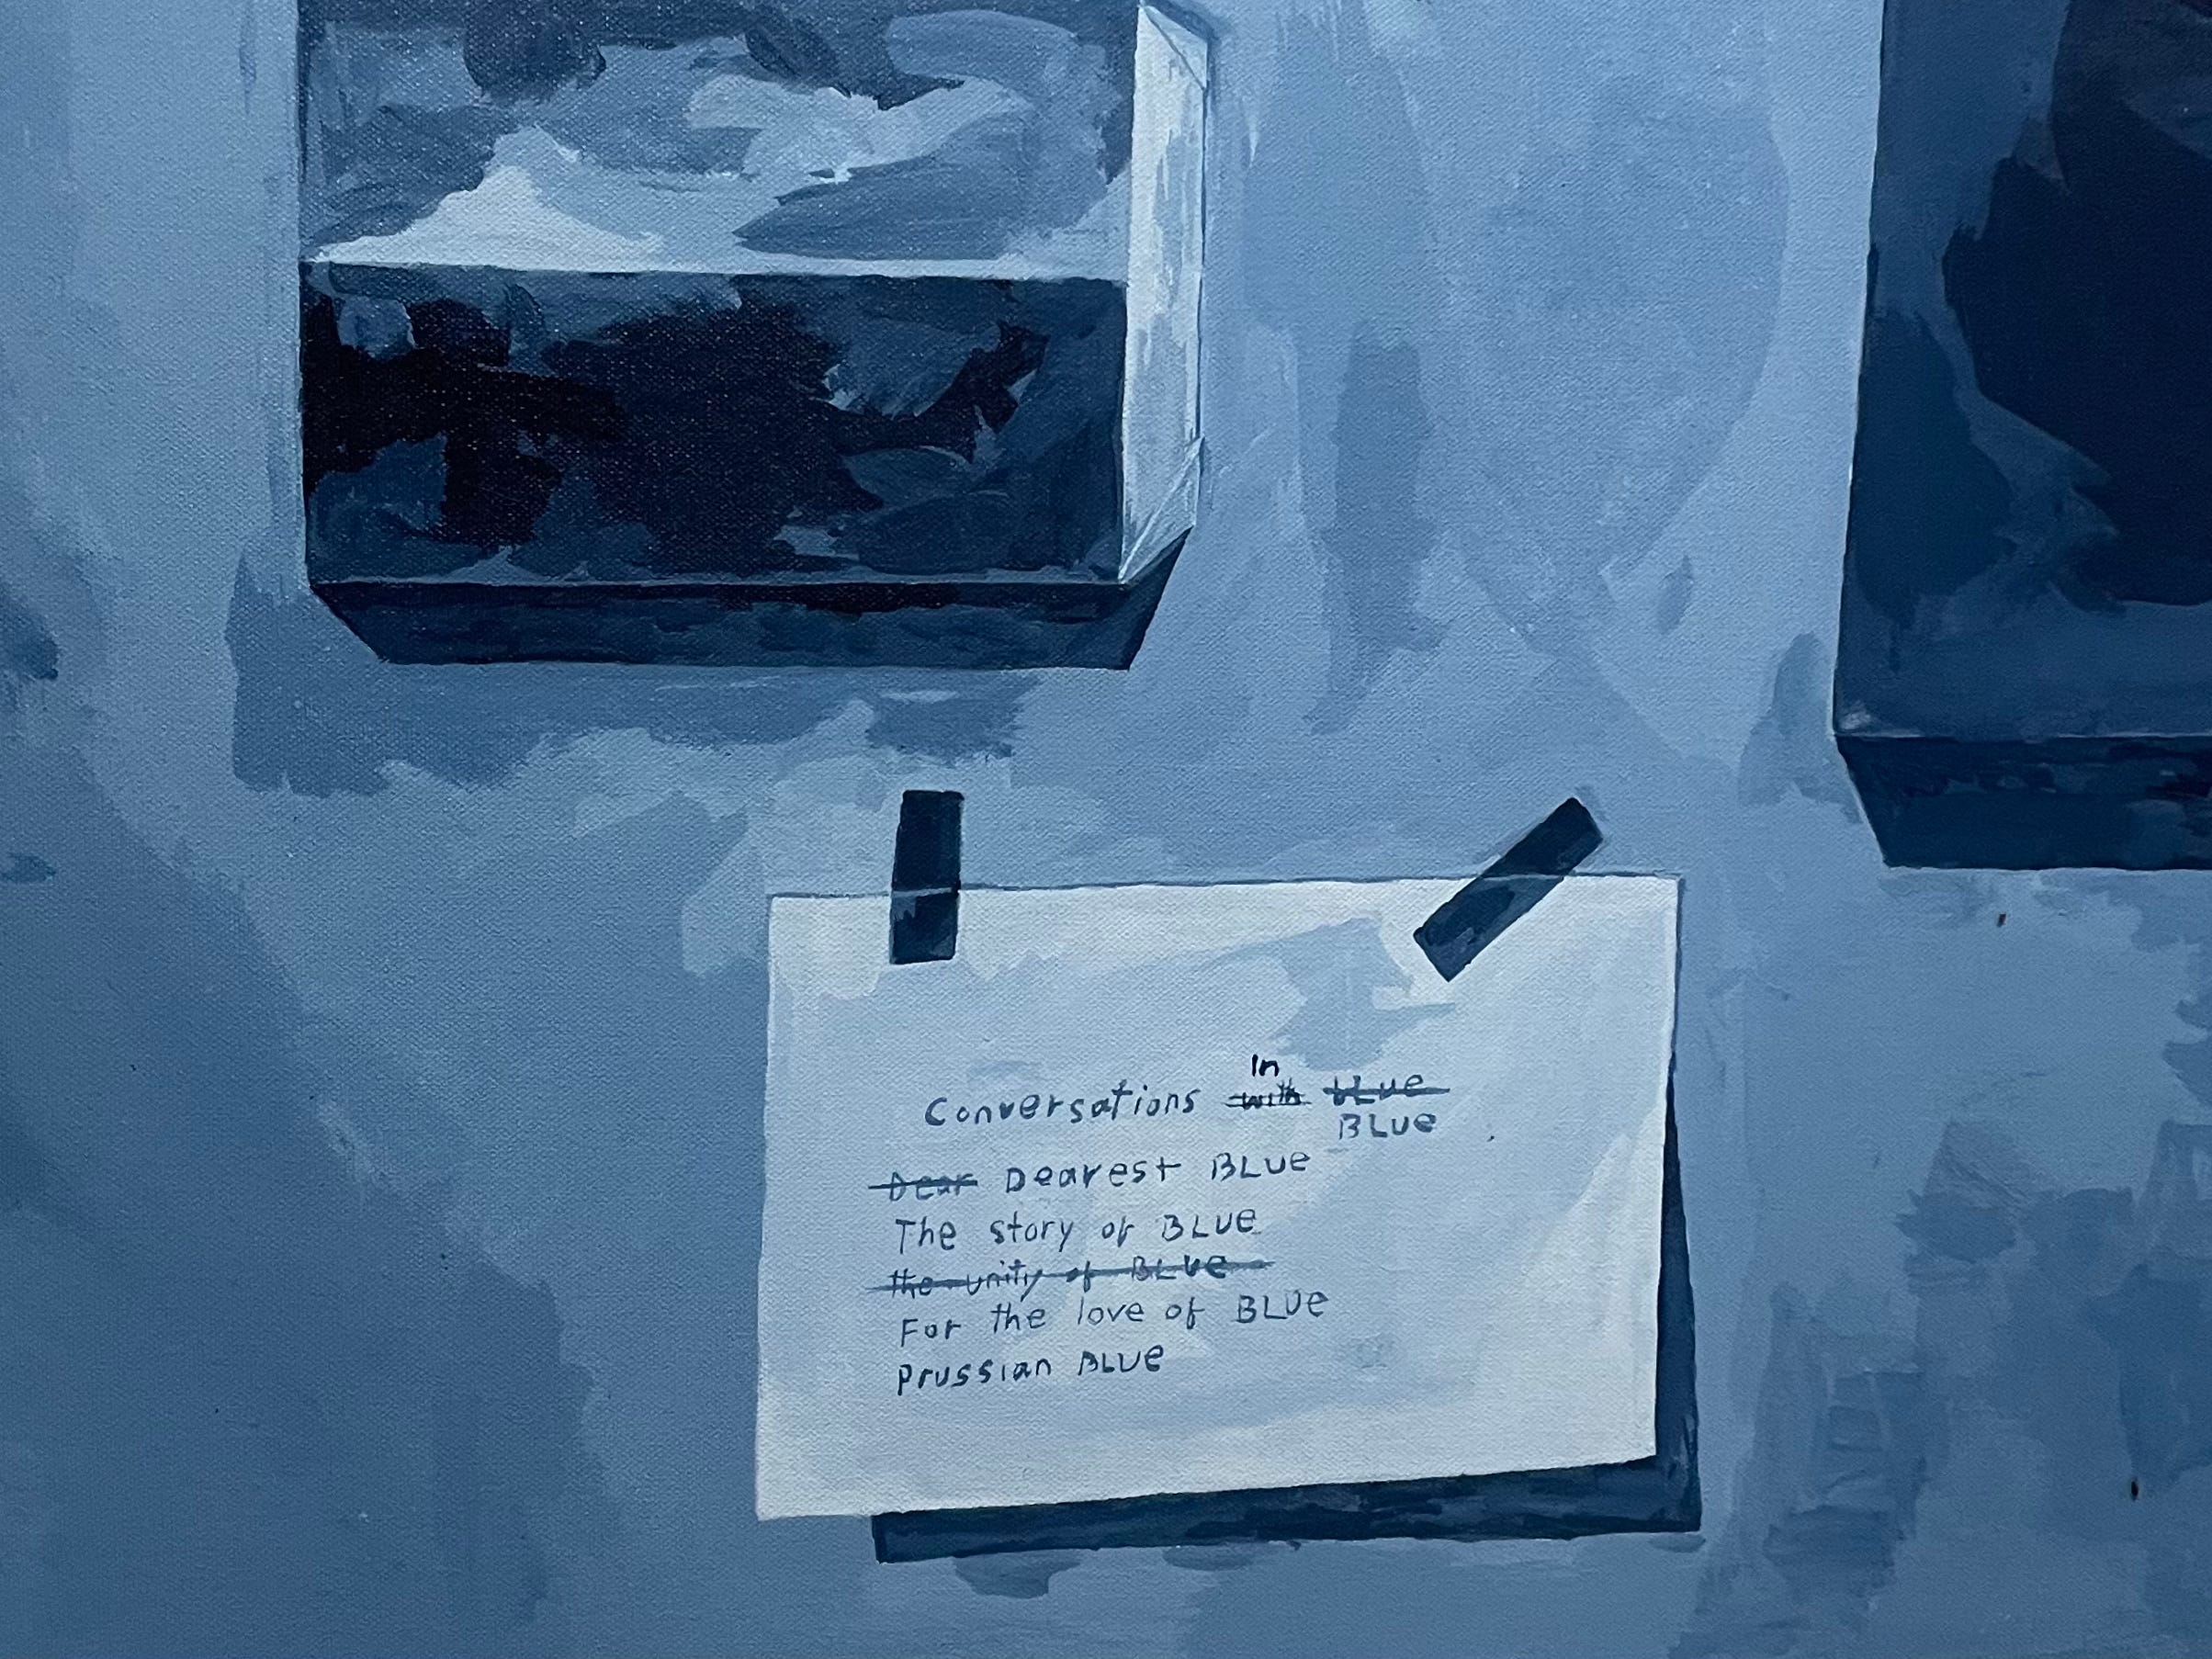 Conversations with In BLUE BLUE
Dear Dearest BLUE
The story of BLUE
the unity of BLUE
For the love of BLUE
Prussian BLUE